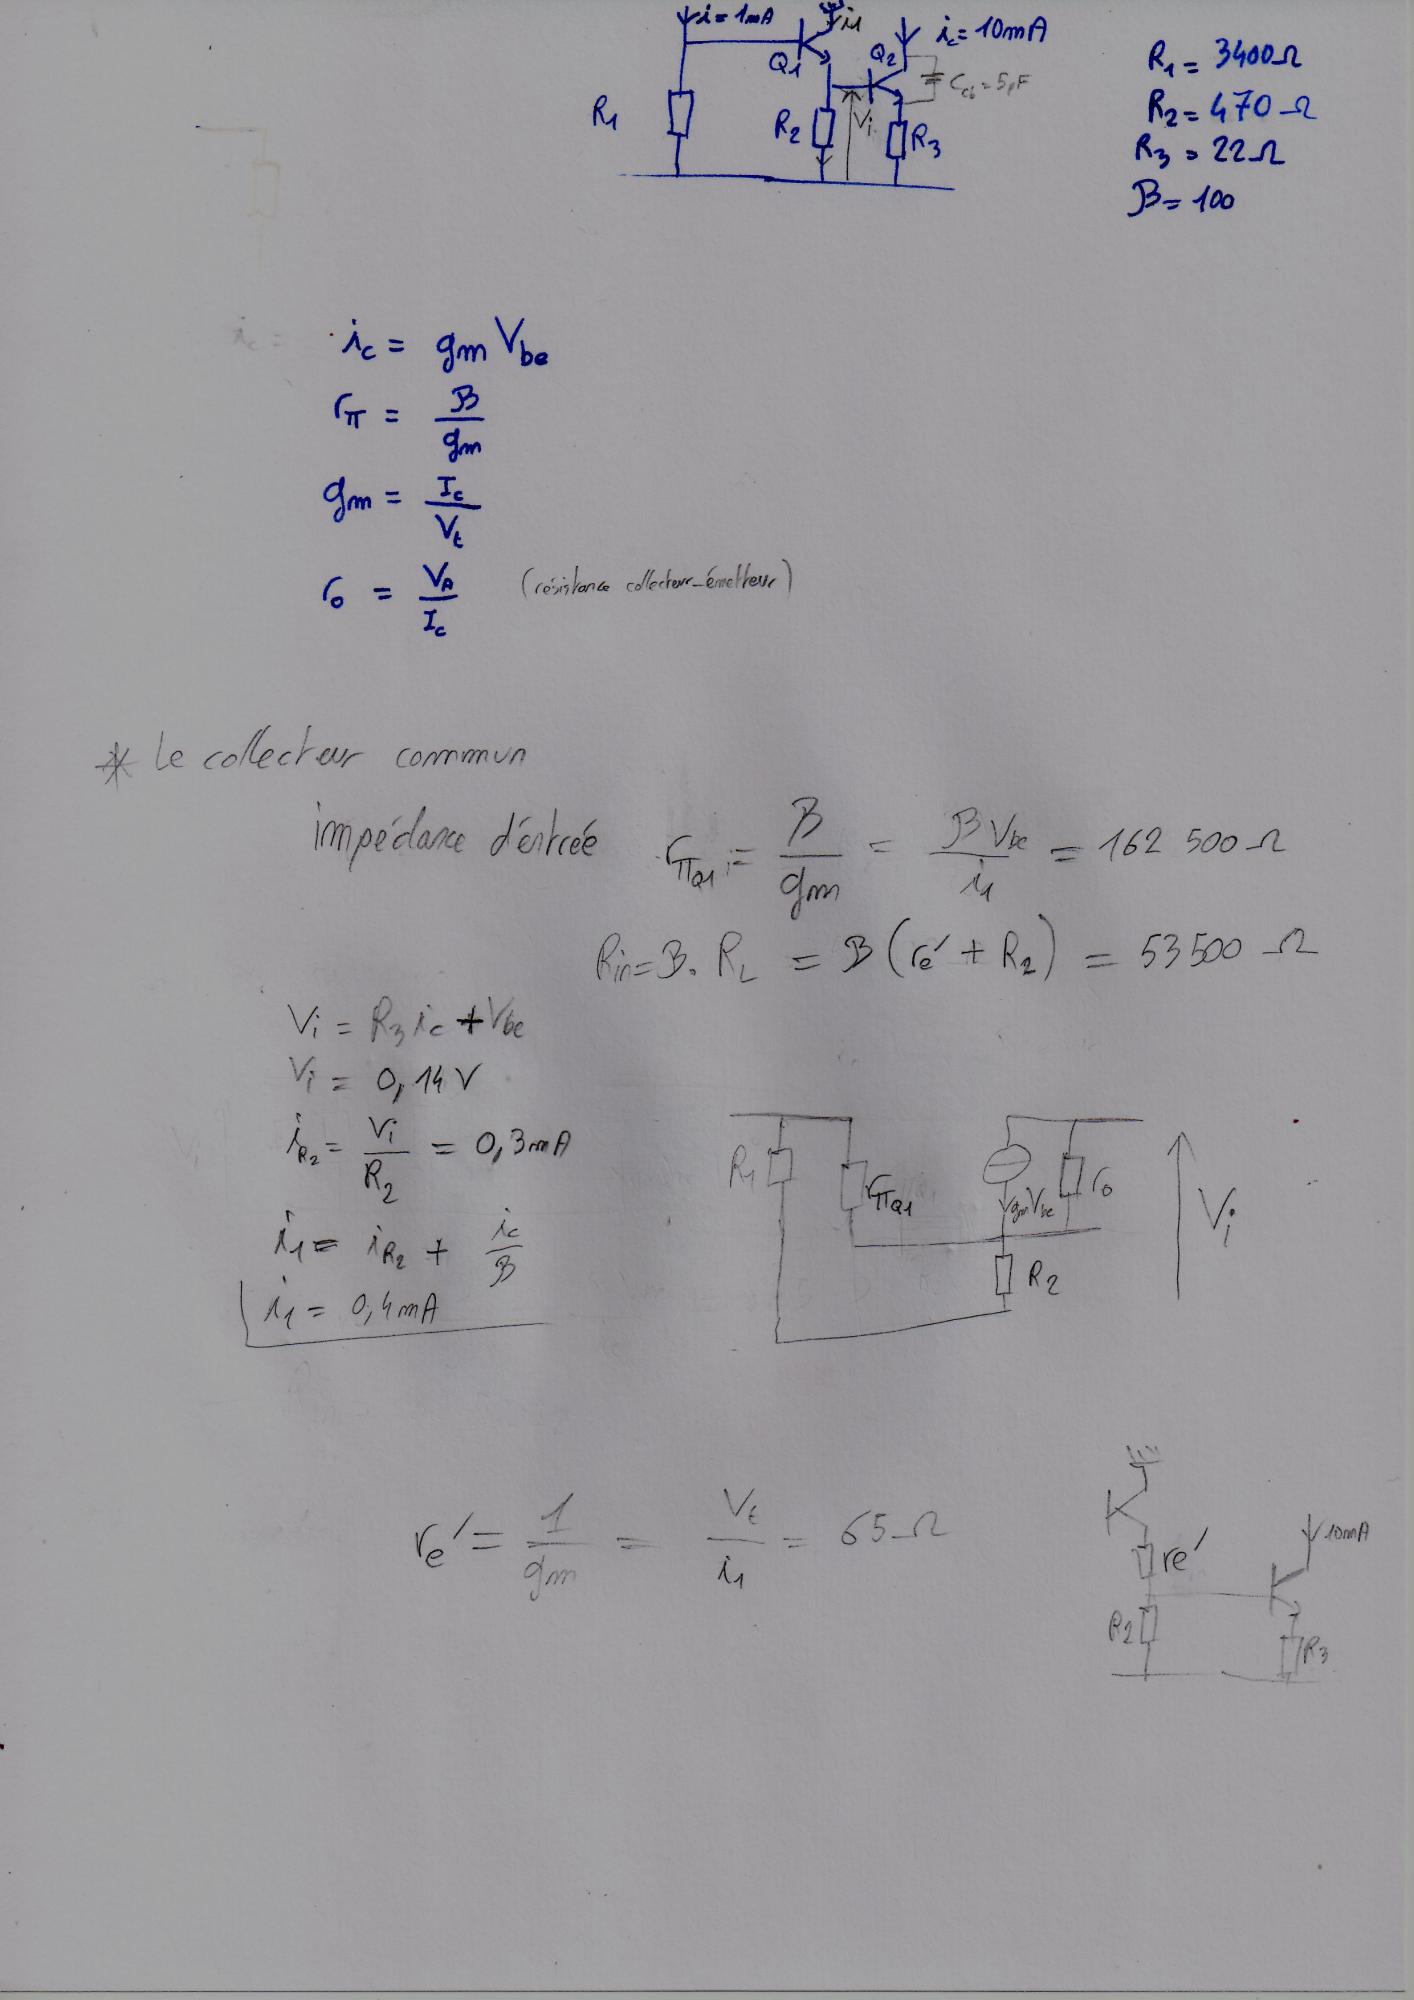 i = 1mA
i1
ic = 10mA
Q1
Q2
Ccb = 5pF
R1
R2
Vi
R3
R1 = 3400Ω
R2 = 470Ω
R3 = 22Ω
β = 100
ic =
ic = gm Vbe
rπ = β / gm
gm = Ic / Vt
ro = VA / Ic (résistance collecteur-émetteur)
* Le collecteur commun
impédance d'éntrée rπQ1 = β / gm = β Vbe / i1 = 162 500 Ω
Rin = β. RL = β (re' + R2) = 53500 Ω
Vi = R3 ic + Vbe
Vi = 0,14 V
iR2 = Vi / R2 = 0,3mA
i1 = iR2 + ic / β
i1 = 0,4mA
R1
rπQ1
gmVbe
ro
Vi
R2
re' = 1 / gm = Vt / i1 = 65Ω
10mA
re'
R2
R3